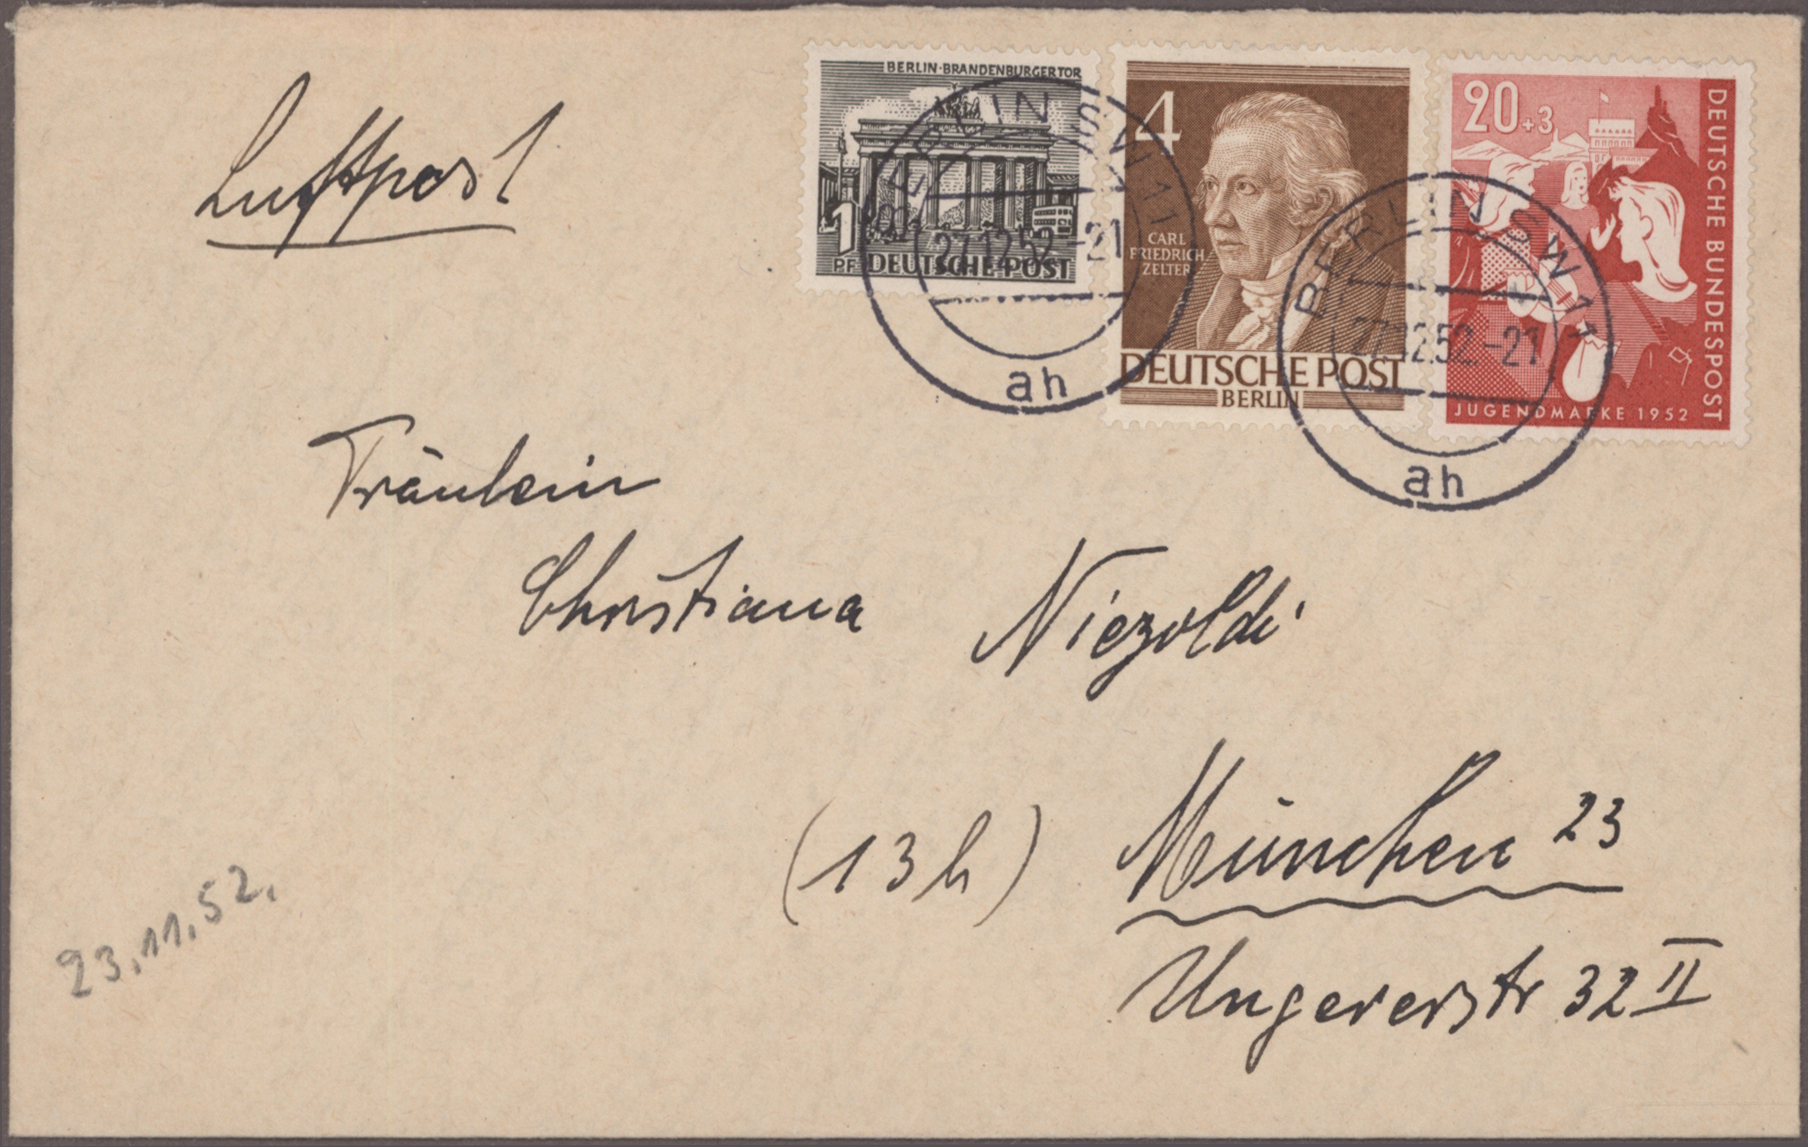 Luftpost
BERLIN-BRANDENBURGER TOR
1
PF DEUTSCHE POST
4
CARL
FRIEDRICH
ZELTER
DEUTSCHE POST
BERLIN
20+3
DEUTSCHE BUNDESPOST
JUGENDMARKE 1952
BERLIN SW 11
27.12.52.-21
ah
BERLIN SW 11
27.12.52.-21
ah
Fräulein
Christiana Niezoldi
(13h) München 23
Ungererstr 32 II
23.11.52.